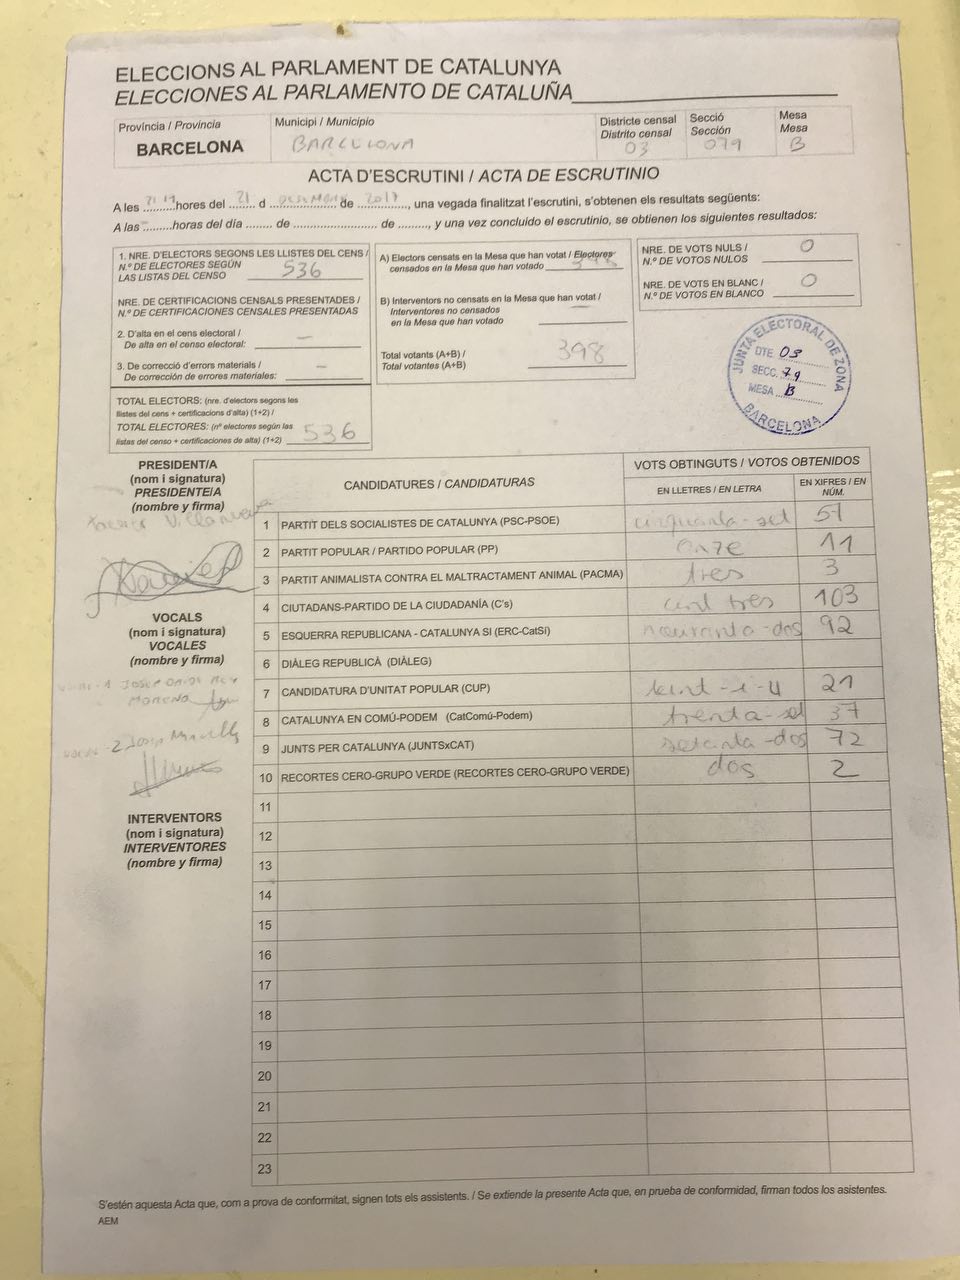 ELECCIONS AL PARLAMENT DE CATALUNYA
ELECCIONES AL PARLAMENTO DE CATALUÑA
Província / Provincia
BARCELONA
Municipi / Municipio
BARCELONA
Districte censal
Distrito censal
03
Secció
Sección
079
Mesa
Mesa
B
ACTA D'ESCRUTINI / ACTA DE ESCRUTINIO
A les ..........hores del 21 d ................ de 2017, una vegada finalitzat l'escrutini, s'obtenen els resultats següents:
A las .........horas del día ....... de ........................ de ........, y una vez concluido el escrutinio, se obtienen los siguientes resultados:
1. NRE. D'ELECTORS SEGONS LES LLISTES DEL CENS /
N.º DE ELECTORES SEGÚN
LAS LISTAS DEL CENSO 536
NRE. DE CERTIFICACIONS CENSALS PRESENTADES /
N.º DE CERTIFICACIONES CENSALES PRESENTADAS
2. D'alta en el cens electoral /
De alta en el censo electoral: —
3. De correcció d'errors materials /
De corrección de errores materiales: —
TOTAL ELECTORS: (nre. d'electors segons les
llistes del cens + certificacions d'alta) (1+2) /
TOTAL ELECTORES: (nº electores según las
listas del censo + certificaciones de alta) (1+2) 536
A) Electors censats en la Mesa que han votat / Electores
censados en la Mesa que han votado 398
B) Interventors no censats en la Mesa que han votat /
Interventores no censados
en la Mesa que han votado
Total votants (A+B) /
Total votantes (A+B) 398
NRE. DE VOTS NULS /
N.º DE VOTOS NULOS 0
NRE. DE VOTS EN BLANC /
N.º DE VOTOS EN BLANCO 0
JUNTA ELECTORAL DE ZONA
DTE. 03
SECC. 79
MESA B
BARCELONA
PRESIDENT/A
(nom i signatura)
PRESIDENTE/A
(nombre y firma)
Villanueva
VOCALS
(nom i signatura)
VOCALES
(nombre y firma)
JOSEP
MORENO
INTERVENTORS
(nom i signatura)
INTERVENTORES
(nombre y firma)
CANDIDATURES / CANDIDATURAS
VOTS OBTINGUTS / VOTOS OBTENIDOS
EN LLETRES / EN LETRA
EN XIFRES / EN NÚM.
1 PARTIT DELS SOCIALISTES DE CATALUNYA (PSC-PSOE) cinquanta-set 57
2 PARTIT POPULAR / PARTIDO POPULAR (PP) onze 11
3 PARTIT ANIMALISTA CONTRA EL MALTRACTAMENT ANIMAL (PACMA) tres 3
4 CIUTADANS-PARTIDO DE LA CIUDADANÍA (C's) cent tres 103
5 ESQUERRA REPUBLICANA - CATALUNYA SI (ERC-CatSi) nouranta-dos 92
6 DIÀLEG REPUBLICÀ (DIÀLEG)
7 CANDIDATURA D'UNITAT POPULAR (CUP) vint-i-u 21
8 CATALUNYA EN COMÚ-PODEM (CatComú-Podem) trenta-set 37
9 JUNTS PER CATALUNYA (JUNTSxCAT) setanta-dos 72
10 RECORTES CERO-GRUPO VERDE (RECORTES CERO-GRUPO VERDE) dos 2
11
12
13
14
15
16
17
18
19
20
21
22
23
S'estén aquesta Acta que, com a prova de conformitat, signen tots els assistents. / Se extiende la presente Acta que, en prueba de conformidad, firman todos los asistentes.
AEM